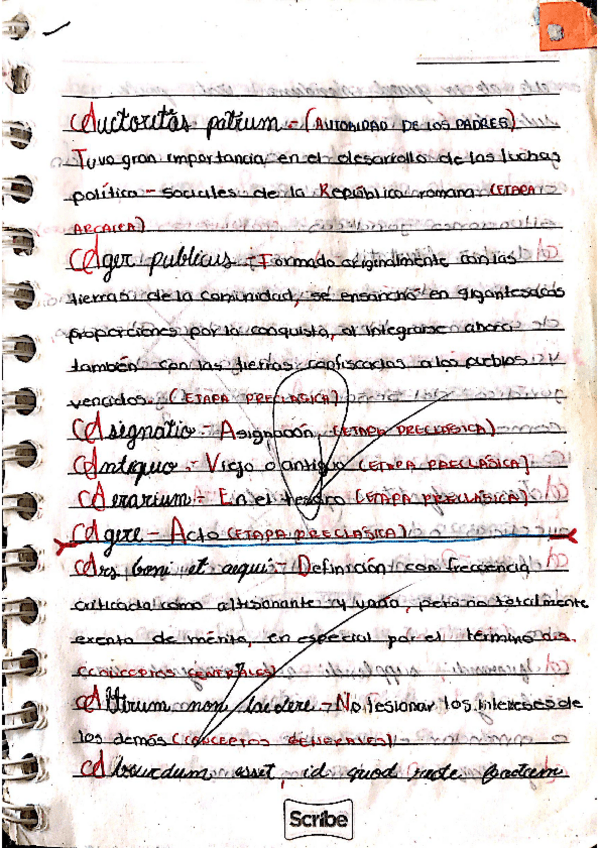 Auctoritas patrum - (AUTORIDAD DE LOS PADRES)
Tuvo gran importancia en el desarrollo de las luchas
política - sociales de la República romana (ETAPA
ARCAICA)
Ager publicus - Formado originalmente con las
tierras de la comunidad, se ensancho en
proporciones por la conquista, al integrarse ahora
también con las tierras confiscadas a los pueblos
vencidos. (ETAPA PRECLASICA)
Asignatio - Asignación (ETAPA PRECLASICA)
Antiquo - Viejo o antiguo (ETAPA PRECLÁSICA)
Aerarium - En el tesoro (ETAPA PRECLÁSICA)
Agere - Acto (ETAPA PRECLASICA)
Ars boni et aequi - Definición con frecuencia
criticada como altisonante y vana, pero no totalmente
exenta de mérito, en especial por el término
(CONCEPTOS GENERALES)
Alterum non laedere - No lesionar los intereses de
los demás (CONCEPTOS GENERALES)
Absurdum esset, id quod
Scribe